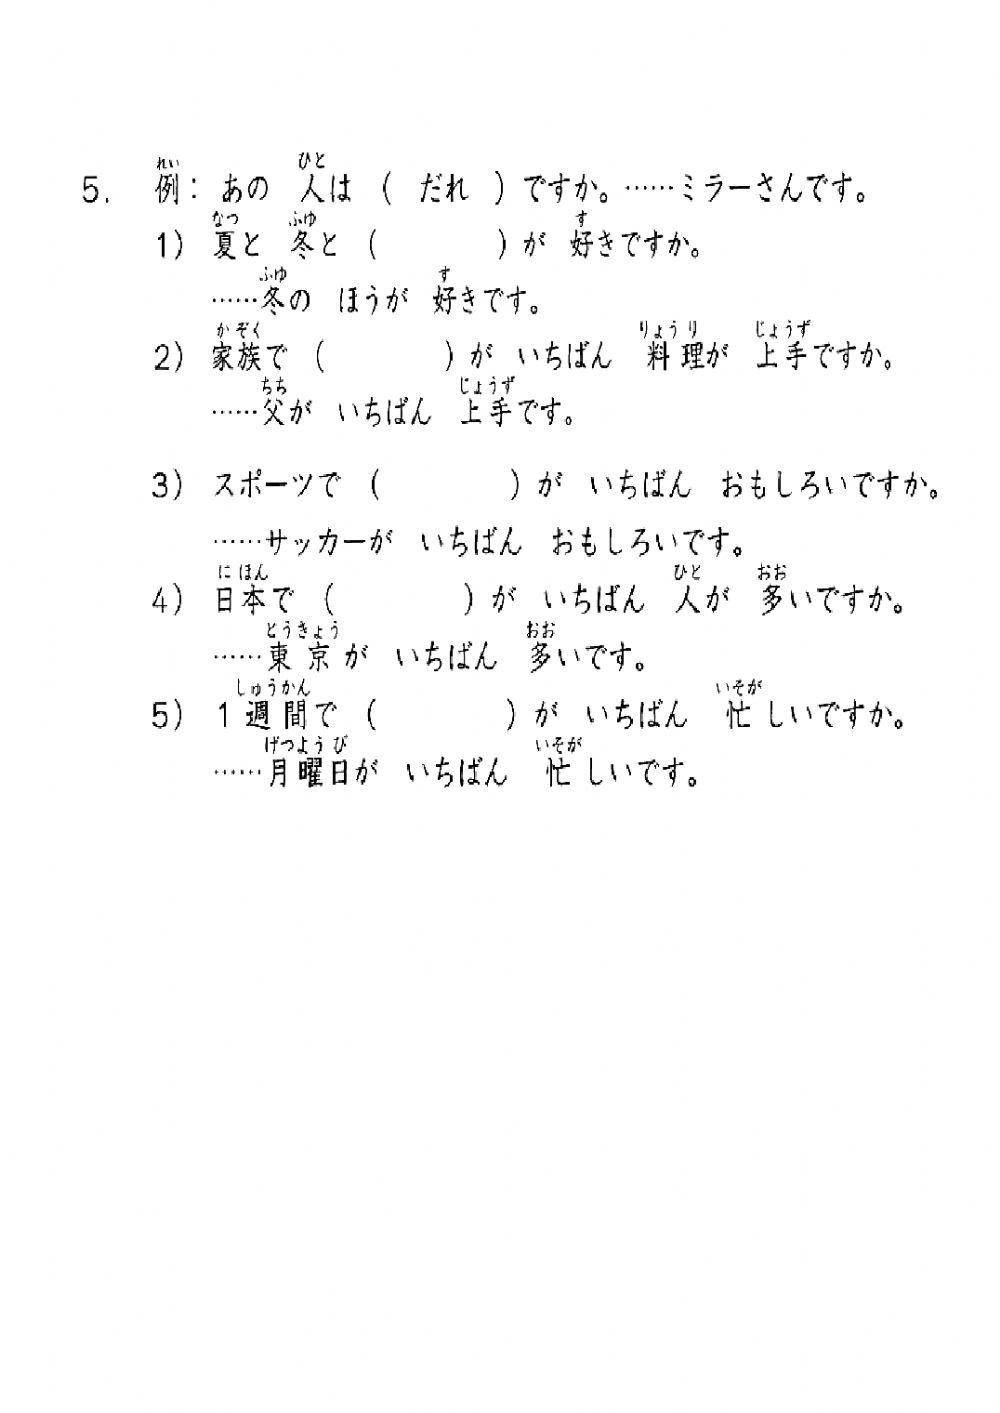 5. 例： あの 人は （ だれ ）ですか。……ミラーさんです。
1） 夏と 冬と（ ）が 好きですか。
……冬の ほうが 好きです。
2） 家族で （ ）が いちばん 料理が 上手ですか。
……父が いちばん 上手です。
3） スポーツで （ ）が いちばん おもしろいですか。
……サッカーが いちばん おもしろいです。
4） 日本で （ ）が いちばん 人が 多いですか。
……東京が いちばん 多いです。
5） 1週間で （ ）が いちばん 忙しいですか。
……月曜日が いちばん 忙しいです。